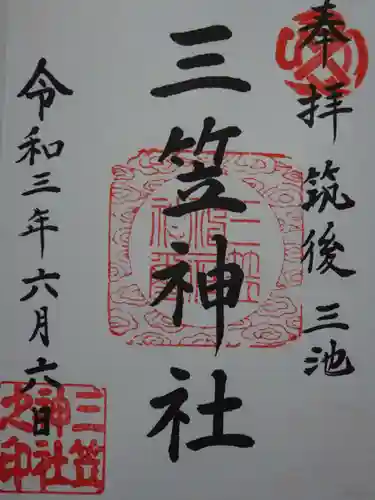 奉拝 筑後 三池
三笠神社
令和三年六月六日
三笠
神社
之印